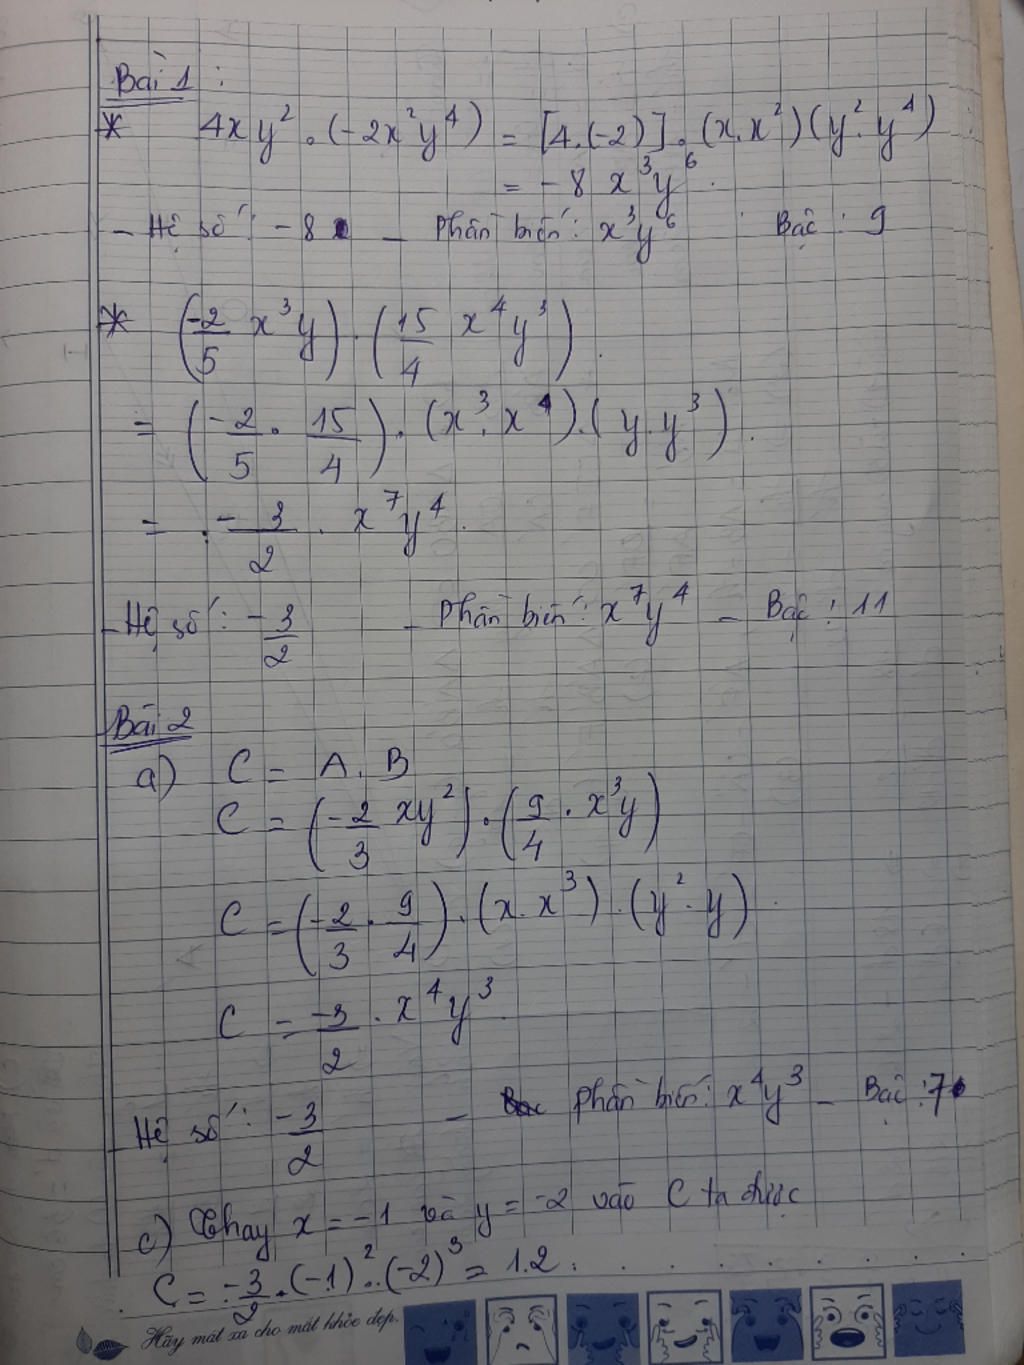 Bài 1 :
* 4xy² . (-2x²y⁴) = [4.(-2)] . (x.x²)(y².y⁴)
= -8 x³y⁶.
- Hệ số : -8 - Phần biến : x³y⁶ Bậc : 9
* (-2/5 x³y) . (15/4 x⁴y³).
= (-2/5 . 15/4) . (x³.x⁴).(y.y³).
= -3/2 . x⁷y⁴.
- Hệ số : -3/2 - Phần biến : x⁷y⁴ - Bậc : 11
Bài 2
a) C = A . B
C = (-2/3 xy²) . (9/4 . x³y)
C = (-2/3 . 9/4) . (x.x³) . (y².y).
C = -3/2 . x⁴y³.
Hệ số : -3/2 - phần biến : x⁴y³ - Bậc : 7
c) Thay x = -1 và y = -2 vào C ta được
C = -3/2 . (-1)² . (-2)³ = 1.2 .
Hãy mát xa cho mắt khỏe đẹp.